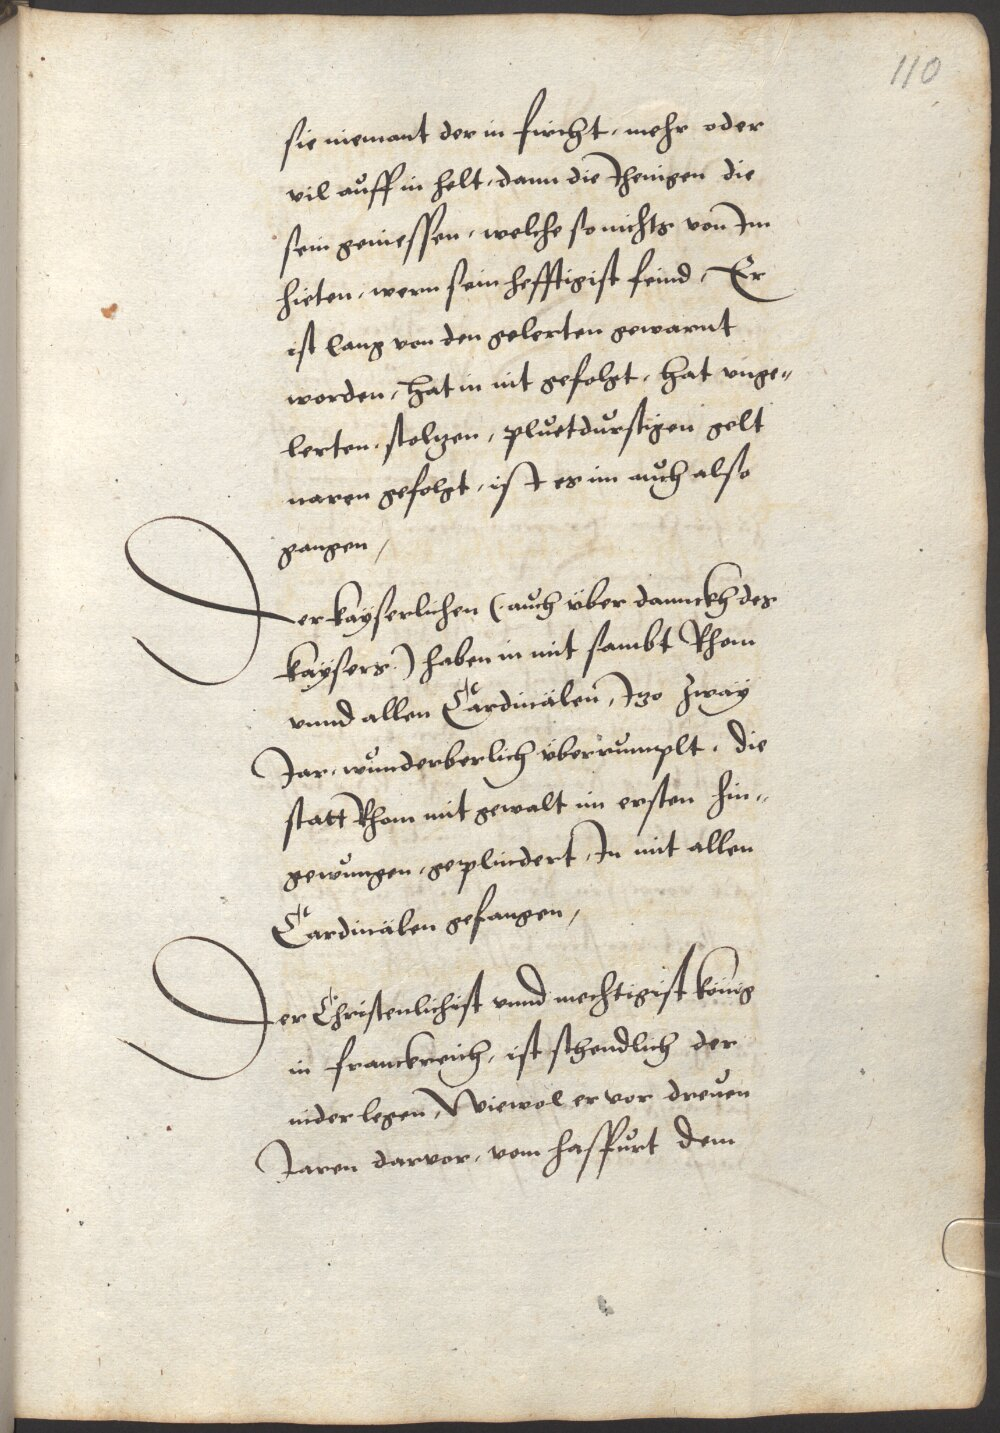 110
sie niemant der in fircht, mehr oder
vil auff in helt, dann die Jhenigen die
sein geniessen, welche so nichts von Im
hieten, wern sein hefftigist feind, Er
ist lang von den gelerten gewarnt
worden, hat in nit gefolgt, hat unge„
lerten, stoltzen, pluetdurstigen gelt
naren gefolgt, ist es im auch also
gangen,
Der kayserlichen (auch über dannckh des
kaysers) haben in mit sambt Rhom
unnd allen Cardinälen, Itzo zway
Jar, wunderberlich überrumplt, die
statt Rhom mit gewalt im ersten hin„
gewungen, geplindert, In mit allen
Cardinälen gefangen,
Der Christenlichist unnd mechtigist könig
in franckreich, ist schendlich der
nider legen, Wiewol er vor dreuen
Jaren darvor, vom hassfurt dem